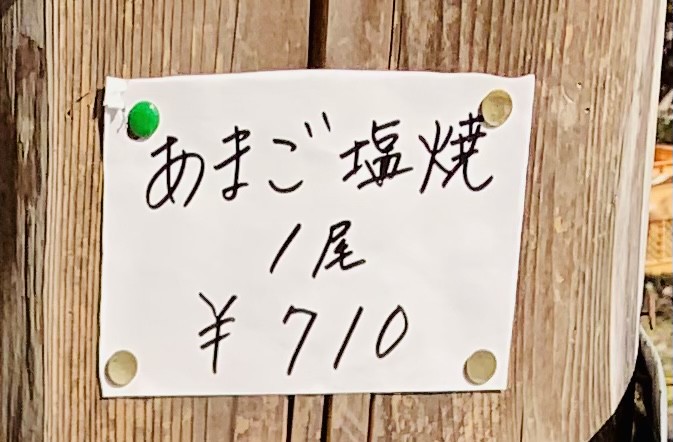 あまご塩焼
1尾
¥710